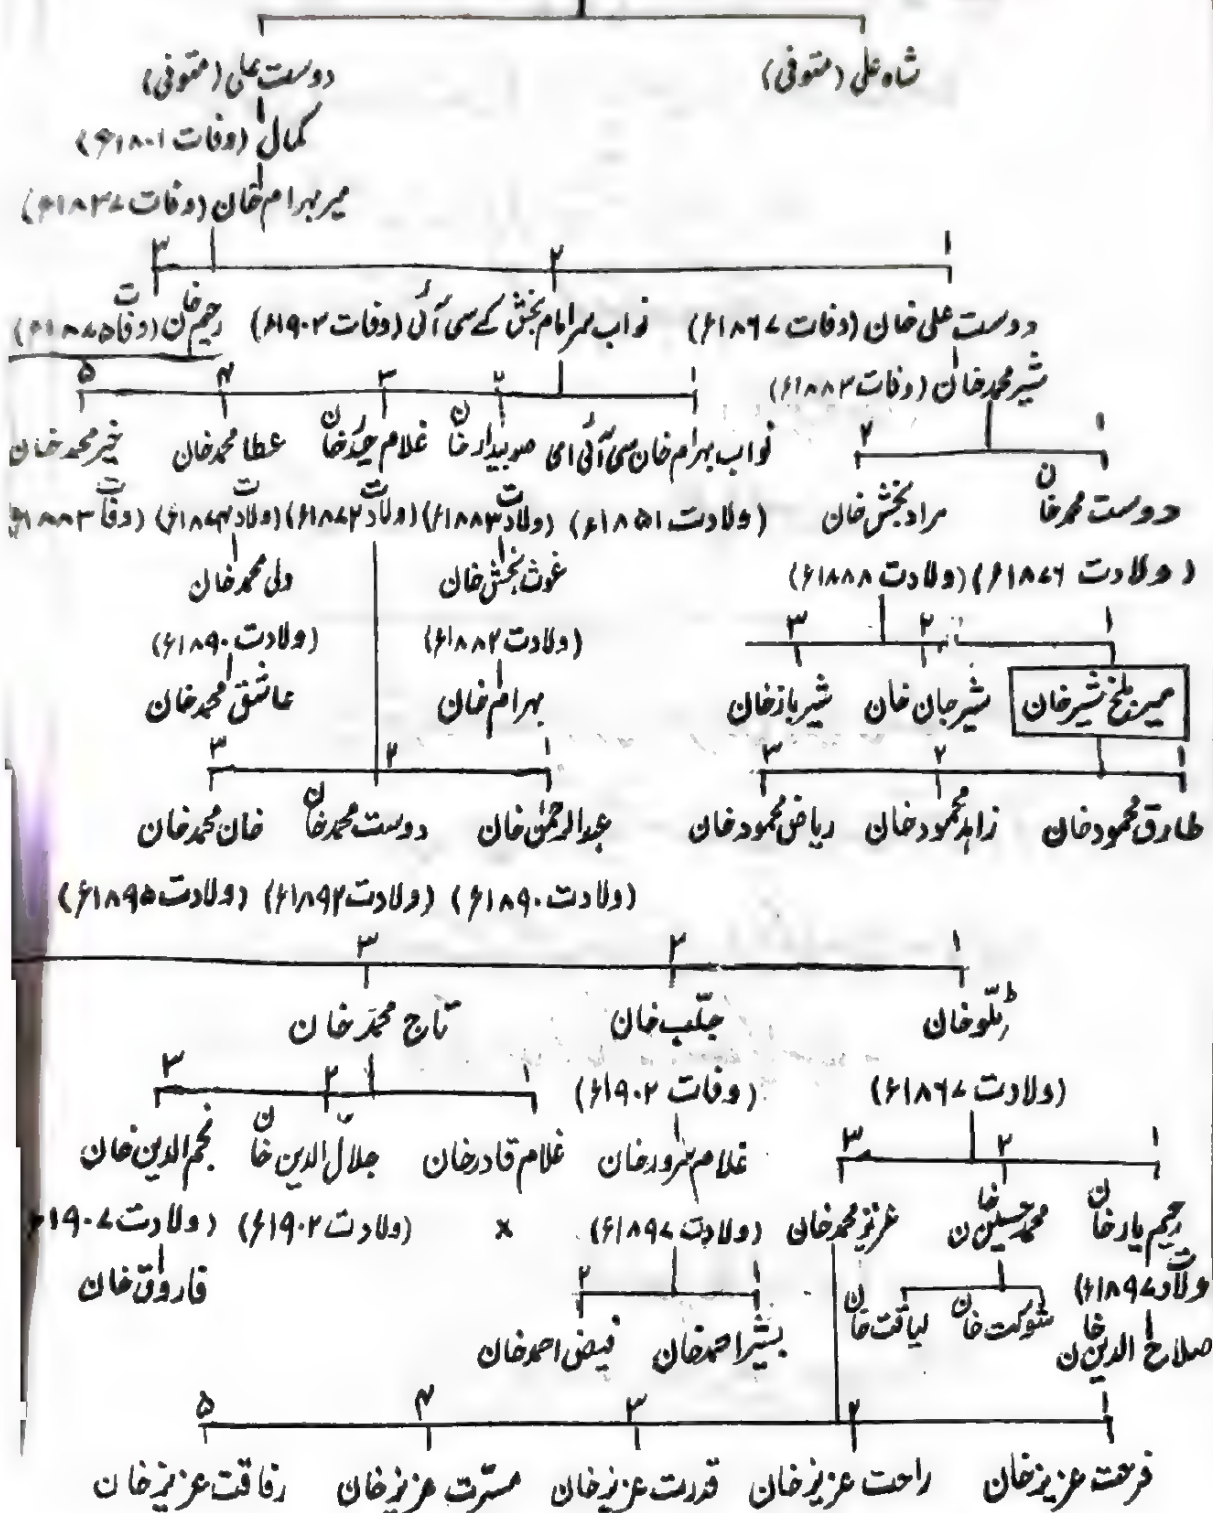 شاہ علی (متوفی) دوست علی (متوفی)
کمال (وفات ۱۸۰۱ء)
میر بہرام خان (وفات ۱۸۳۷ء)
۱ ۲ ۳
دوست علی خان (وفات ۱۸۶۷ء) نواب سر امام بخش کے سی آئی ای (وفات ۱۹۰۲ء) رحیم خان (وفات ۱۸۷۵ء)
شیر محمد خان (وفات ۱۸۸۲ء) ۱ ۲ ۳ ۴ ۵
۱ ۲ نواب بہرام خان سی آئی ای صوبیدار خان غلام حیدر خان عطا محمد خان خیر محمد خان
دوست محمد خان مراد بخش خان (ولادت ۱۸۵۱ء) (ولادت ۱۸۸۳ء) (ولادت ۱۸۷۲ء) (ولادت ۱۸۷۴ء) (وفات ۱۸۸۳ء)
(ولادت ۱۸۷۶ء) (ولادت ۱۸۸۸ء) غوث بخش خان ولی محمد خان
۱ ۲ ۳ (ولادت ۱۸۸۲ء) (ولادت ۱۸۹۰ء)
میر بلخ شیر خان شیر جان خان شیر باز خان بہرام خان عاشق محمد خان
۱ ۲ ۳ ۱ ۲ ۳
طارق محمود خان زاہد محمود خان ریاض محمود خان عبدالرحمٰن خان دوست محمد خان خان محمد خان
(ولادت ۱۸۹۰ء) (ولادت ۱۸۹۲ء) (ولادت ۱۸۹۵ء)
۱ ۲ ۳
ٹلّو خان جلّب خان تاج محمد خان
(ولادت ۱۸۶۷ء) (وفات ۱۹۰۲ء) ۱ ۲ ۳
۱ ۲ ۳ غلام سرور خان غلام قادر خان جلال الدین خان نجم الدین خان
رحیم یار خان محمد حسین خان عزیز محمد خان (ولادت ۱۸۹۷ء) × (ولادت ۱۹۰۲ء) (ولادت ۱۹۰۷ء
ولادت ۱۸۹۷ء) ۱ ۲ فاروق خان
صلاح الدین خان شوکت خان لیاقت خان بشیر احمد خان فیض احمد خان
۱ ۲ ۳ ۴ ۵
فرحت عزیز خان راحت عزیز خان قدرت عزیز خان مسرّت عزیز خان رفاقت عزیز خان